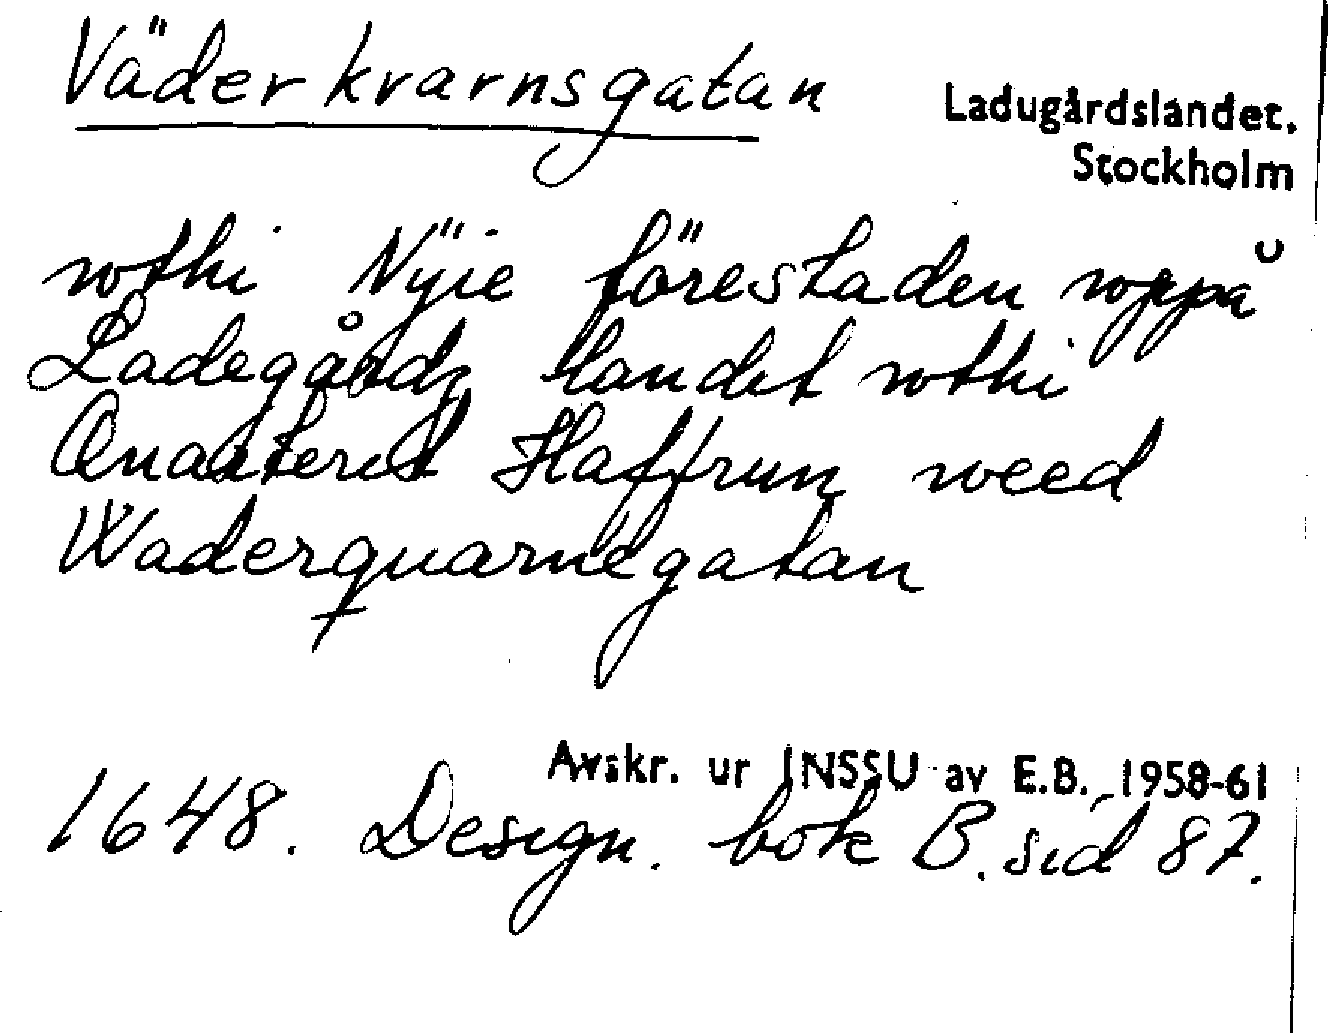 Väderkvarnsgatan
Ladugårdslandet.
Stockholm
wthi Nÿie förestaden wppå
Ladegårdz landet wthi
Quarteret Haffrun weed
Waderquarnegatan
Avskr. ur INSSU av E.B., 1958-61
1648. Design. bok B. sid 87.